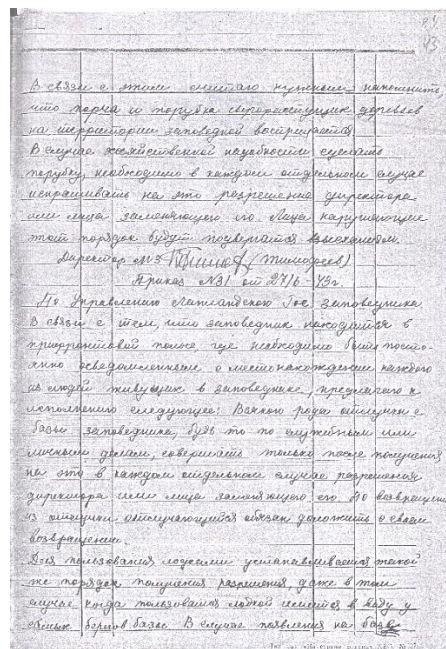 43
В связи с этим считаю нужным напомнить,
что порча и порубка сырорастущих деревьев
на территории заповедной воспрещается
В случае хозяйственной надобности сделать
порубку, необходимо в каждом отдельном случае
испрашивать на это разрешения директора
или лица заменяющего его. Лица нарушающие
этот порядок будут подвергатся взысканиям.
Директор ЛГЗ (Тимофеев)
Приказ №31 от 27/6-43г.
По Управлению Лапландского Гос. заповедника
В связи с тем, что заповедник находится в
прифронтовой полосе где необходимо быть посто-
янно осведомленными о местонахождении каждого
из людей живущих в заповеднике, предлагаю к
исполнению следующее: Всякого рода отлучки с
базы заповедника, будь то по служебным или
личным делам, совершать только после получения
на это в каждом отдельном случае разрешения
директора или лица заменяющего его. По возвращении
из отлучки отлучающийся обязан доложить о своем
возвращении.
Для пользования лодками устанавливается такой
же порядок получения разрешения, даже в том
случае когда пользования лодкой имеется в виду у
самых берегов базы. В случае появления на базе